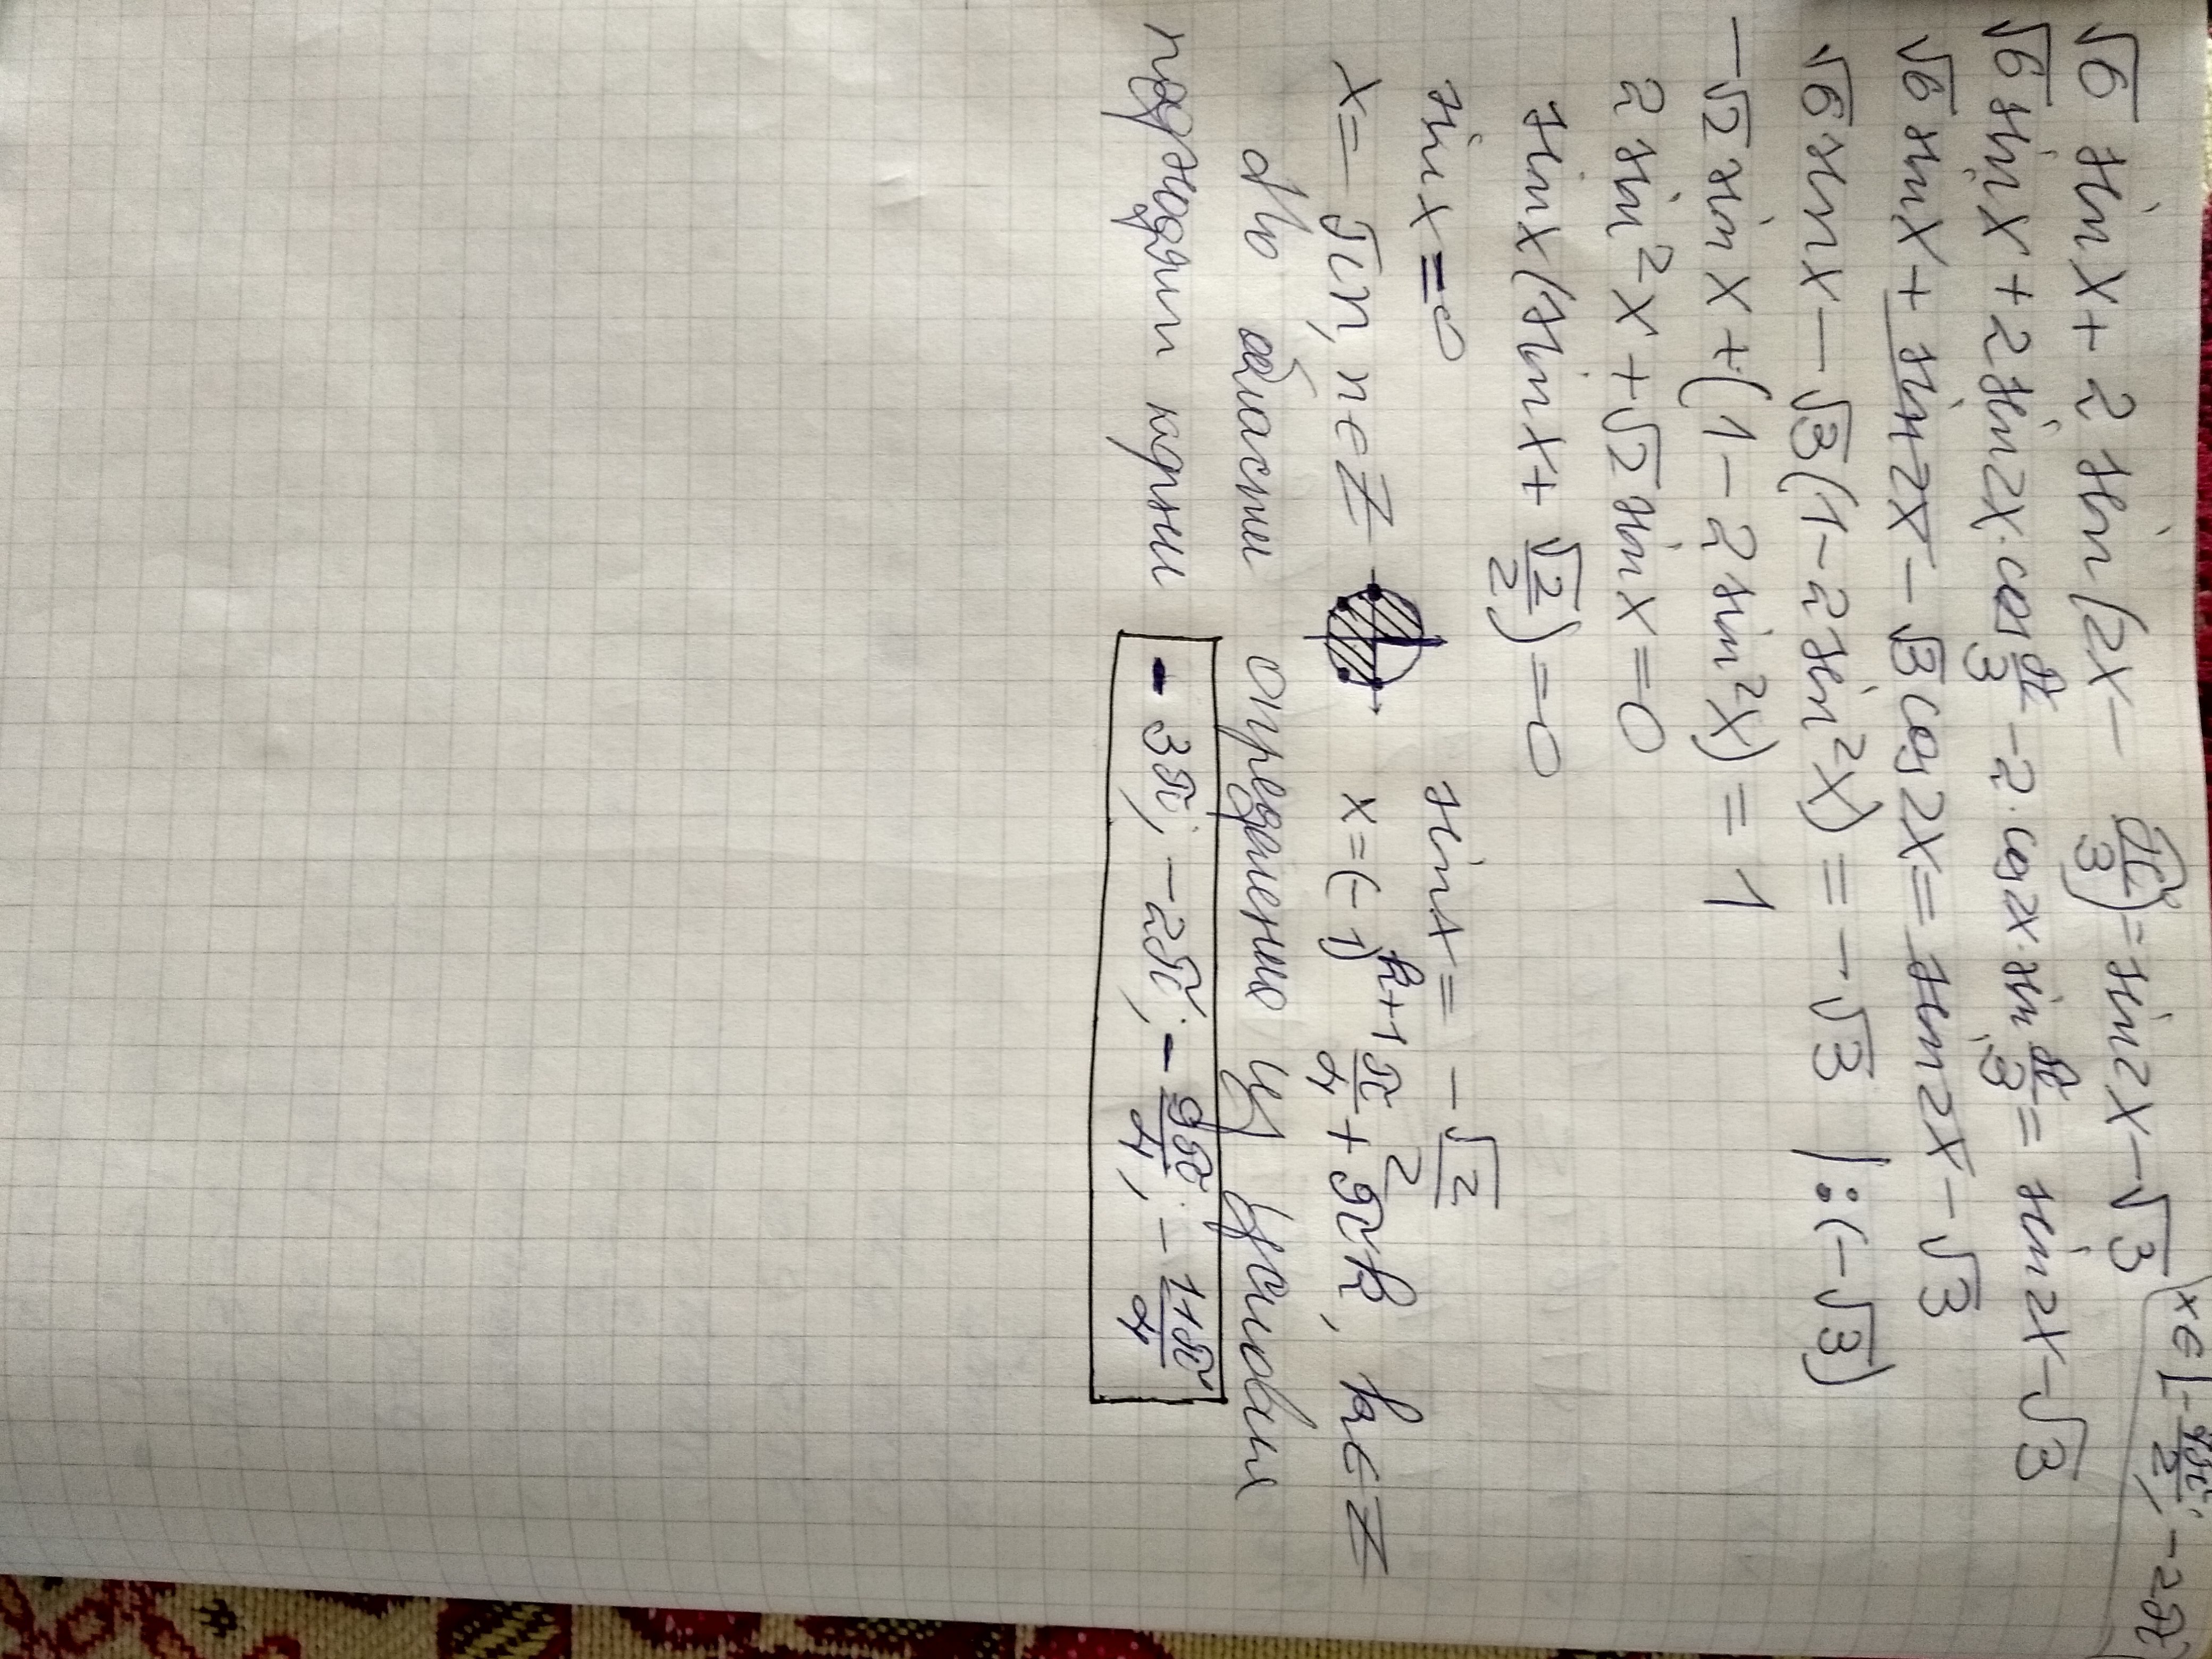 √6 sin x + 2 sin (2x − π/3) = sin 2x − √3
x ∈ [− 9π/2; −2π]
√6 sin x + 2 sin 2x · cos π/3 − 2 · cos 2x · sin π/3 = sin 2x − √3
√6 sin x + sin 2x − √3 cos 2x = sin 2x − √3
√6 sin x − √3 (1 − 2 sin² x) = − √3 | : (−√3)
−√2 sin x + (1 − 2 sin² x) = 1
2 sin² x + √2 sin x = 0
sin x (sin x + √2/2) = 0
sin x = 0 sin x = − √2/2
x = πn, n ∈ Z x = (−1)^{k+1} π/4 + πk, k ∈ Z
По области определению из условия
подходят корни − 3π; −2π; − 9π/4; − 11π/4